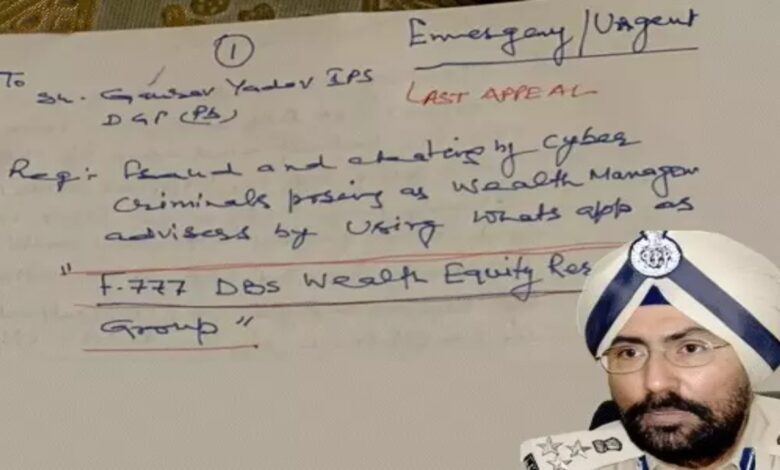 1
Emergency/Urgent
To
Sh. Gaurav Yadav IPS
DGP (Pb)
LAST APPEAL
Reg:- Fraud and cheating by Cyber
Criminals posing as Wealth
advisers by Using Whats app as
"F.777 DBS Wealth Equity Res
Group"